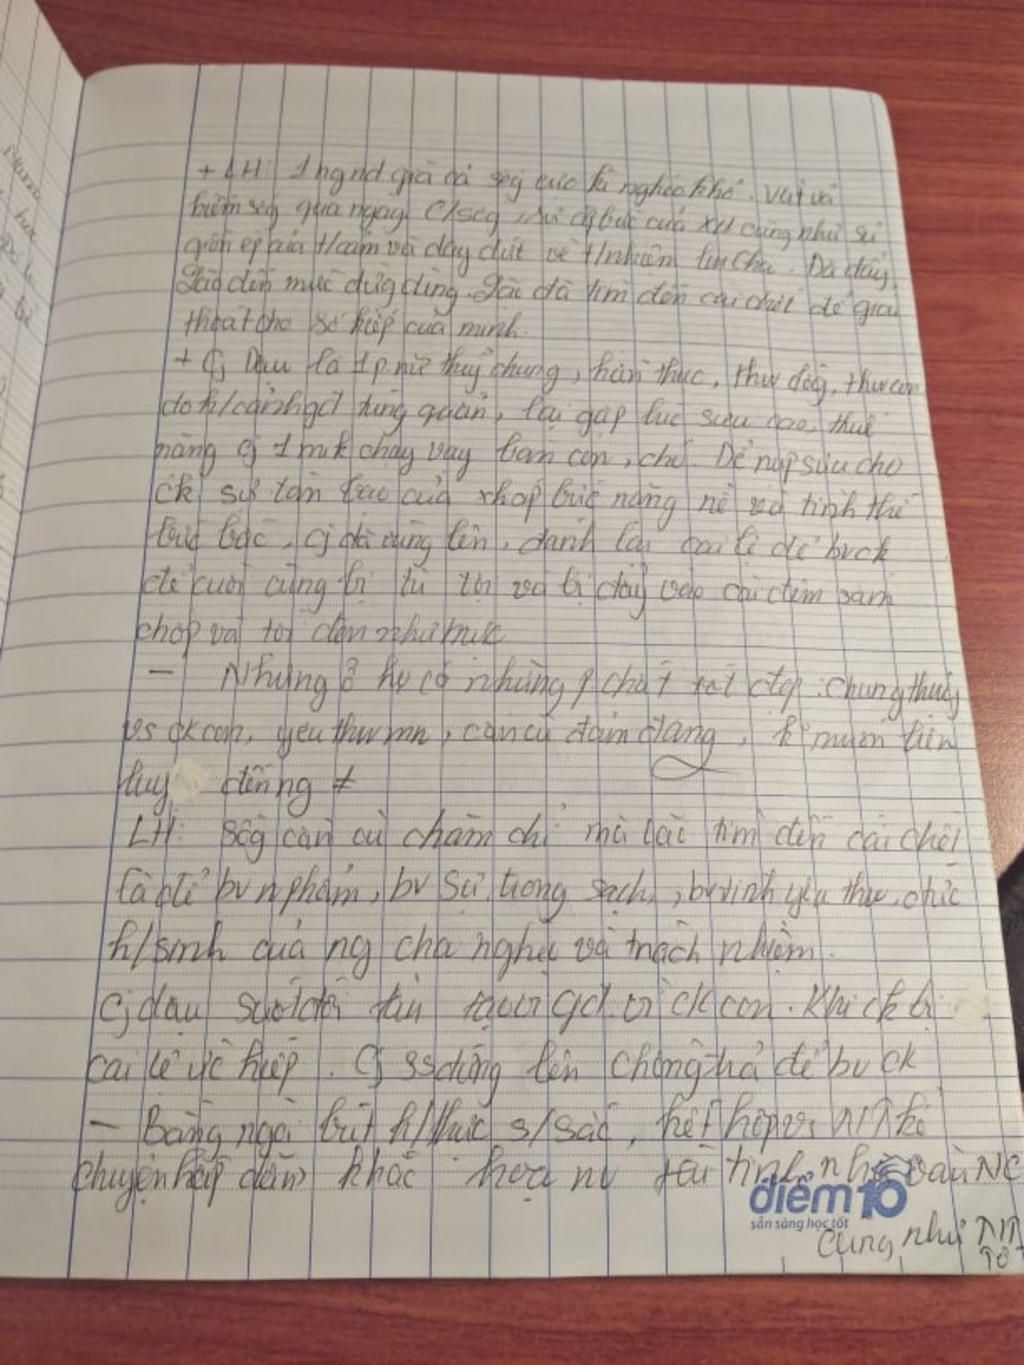 + LH: 1 ngnd già cả sốg cực là nghèo khổ. vất vả
kiếm sốg qua ngày. C/sốg, sự bức của XH cũng như sự
của t/cảm và day dứt về t/nhiệm làm cha. Đã đẩy
Lão đến mức đường cùng. Lão đã tìm đến cái chết để giải
thoát cho số kiếp của mình.
+ Cj Dậu là 1 p.nữ thuỷ chung, hiền thục, thư chồg, thư con
do h/cảnh gđ túng quẩn, lại gặp lúc sưu cao, thuế
nặng cj 1 mik chạy vạy bán con, chó. Để nộp sưu cho
ck sự tàn bạo của bức nặng nề và tình thế
bức bác, cj đã vùng lên, đánh lại cai lệ để bv ck
để cuối cùng bị tù tội và bị đẩy vào cái đêm
và tối đen như mực
- Nhưng ở họ có những p chất tốt đẹp: chung thuỷ
vs ck con, yêu thư mn, cần cù đảm đang, k muốn liên
luỵ đến ng ≠
LH: sốg cần cù chăm chỉ mà Lão tìm đến cái chết
là để bv n phẩm, bv sự trong sạch, bv tình yêu thư, đức
h/sinh của ng cha nghĩa và trách nhiệm.
Cj dậu suốt đời tần tảo vì gđ vì ck con. Khi ck bị
cai lệ ức hiếp. Cj ss đứng lên chống trả để bv ck
- Bằng ngòi bút h/thực s/sắc, kết hợp vs NT kể
chuyện hấp dẫn khắc hoạ nv tài tình nhà văn NC
cũng như NTTố
điểm 10
sẵn sàng học tốt